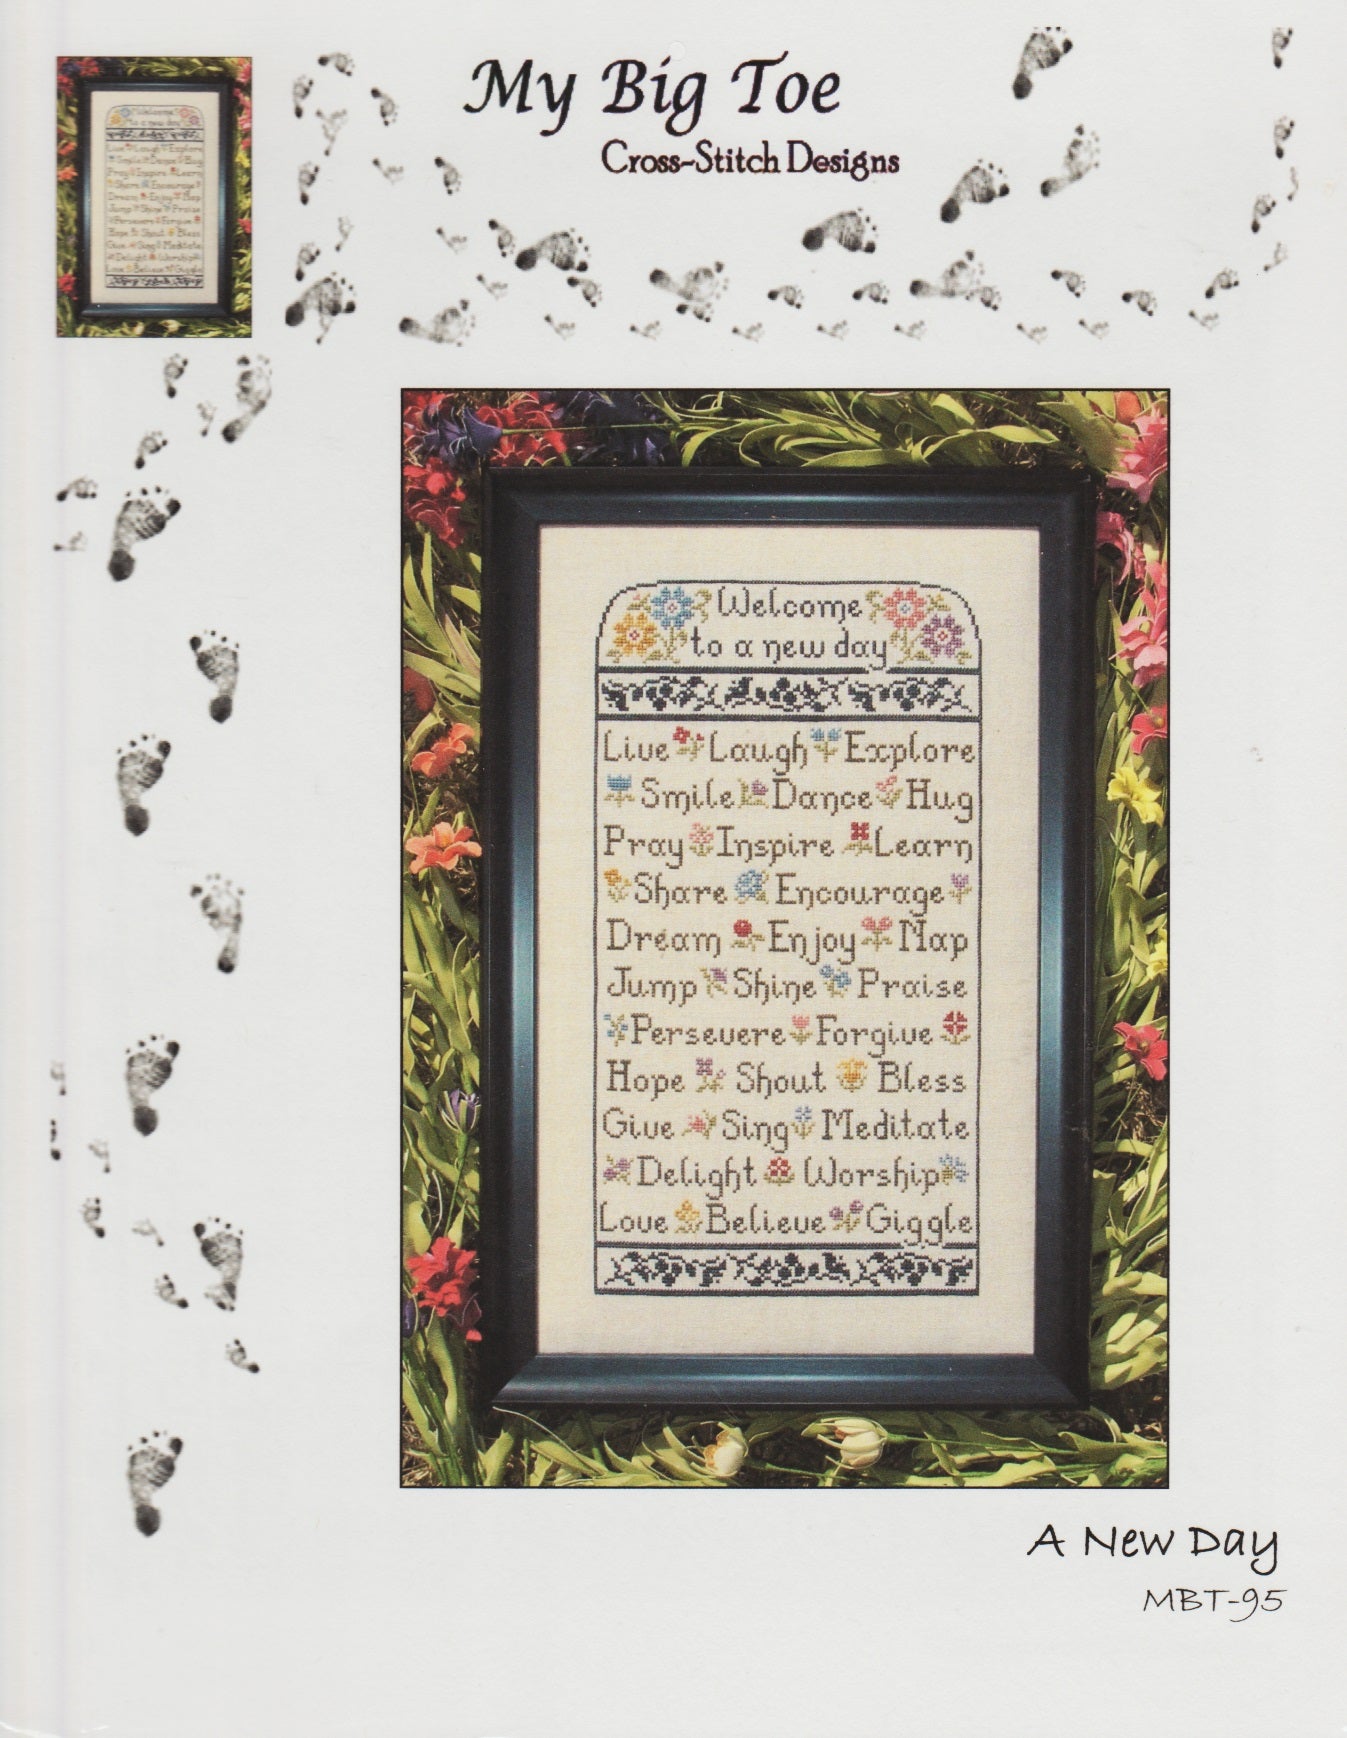 My Big Toe
Cross-Stitch Designs
Welcome
to a new day
Live Laugh Explore
Smile Dance Hug
Pray Inspire Learn
Share Encourage
Dream Enjoy Nap
Jump Shine Praise
Persevere Forgive
Hope Shout Bless
Give Sing Meditate
Delight Worship
Love Believe Giggle
A New Day
MBT-95